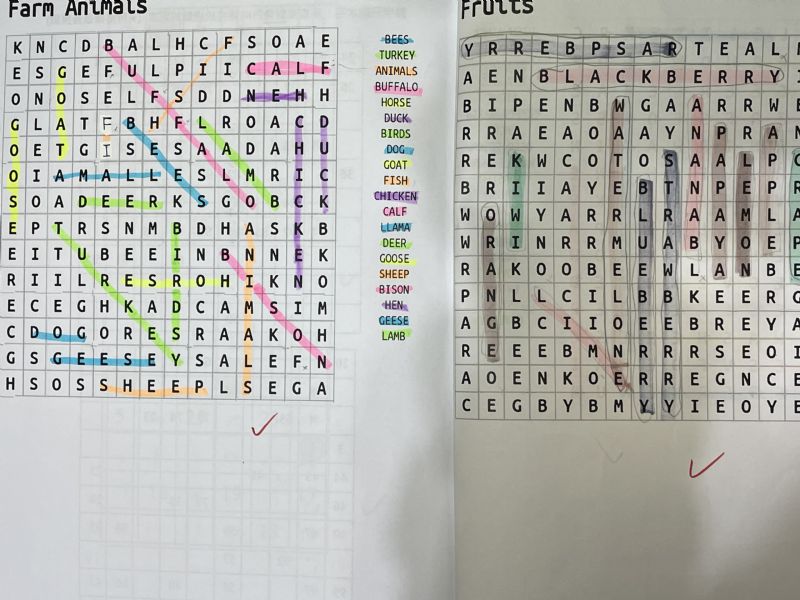 Farm Animals
K N C D B A L H C F S O A E
E S G E F U L P I I C A L F
O N O S E L F S D D N E H H
G L A T F B H F L R O A C D
O E T G I S E S A A D A H U
O I A M A L L E S L M R I C
S O A D E E R K S G O B C K
E P T R S N M B D H A S K B
E I T U B E E I N B N N E K
R I I L R E S R O H I K N O
E C E G H K A D C A M S I M
C D O G O R E S R A A K O H
G S G E E S E Y S A L E F N
H S O S S H E E P L S E G A
BEES
TURKEY
ANIMALS
BUFFALO
HORSE
DUCK
BIRDS
DOG
GOAT
FISH
CHICKEN
CALF
LLAMA
DEER
GOOSE
SHEEP
BISON
HEN
GEESE
LAMB
Fruits
Y R R E B P S A R T E A L
A E N B L A C K B E R R Y
B I P E N B W G A A R R W
R R A E A O A A Y N P R A
R E K W C O T O S A A L P
B R I I A Y E B T N P E P
W O W Y A R R L R A A M L
W R I N R R M U A B Y O E
R A K O O B E E W L A N B
P N L L C I L B B K E E R
A G B C I I O E E B R E Y
R E E E B M N R R R S E O
A O E N K O E R R E G N C
C E G B Y B M Y Y I E O Y